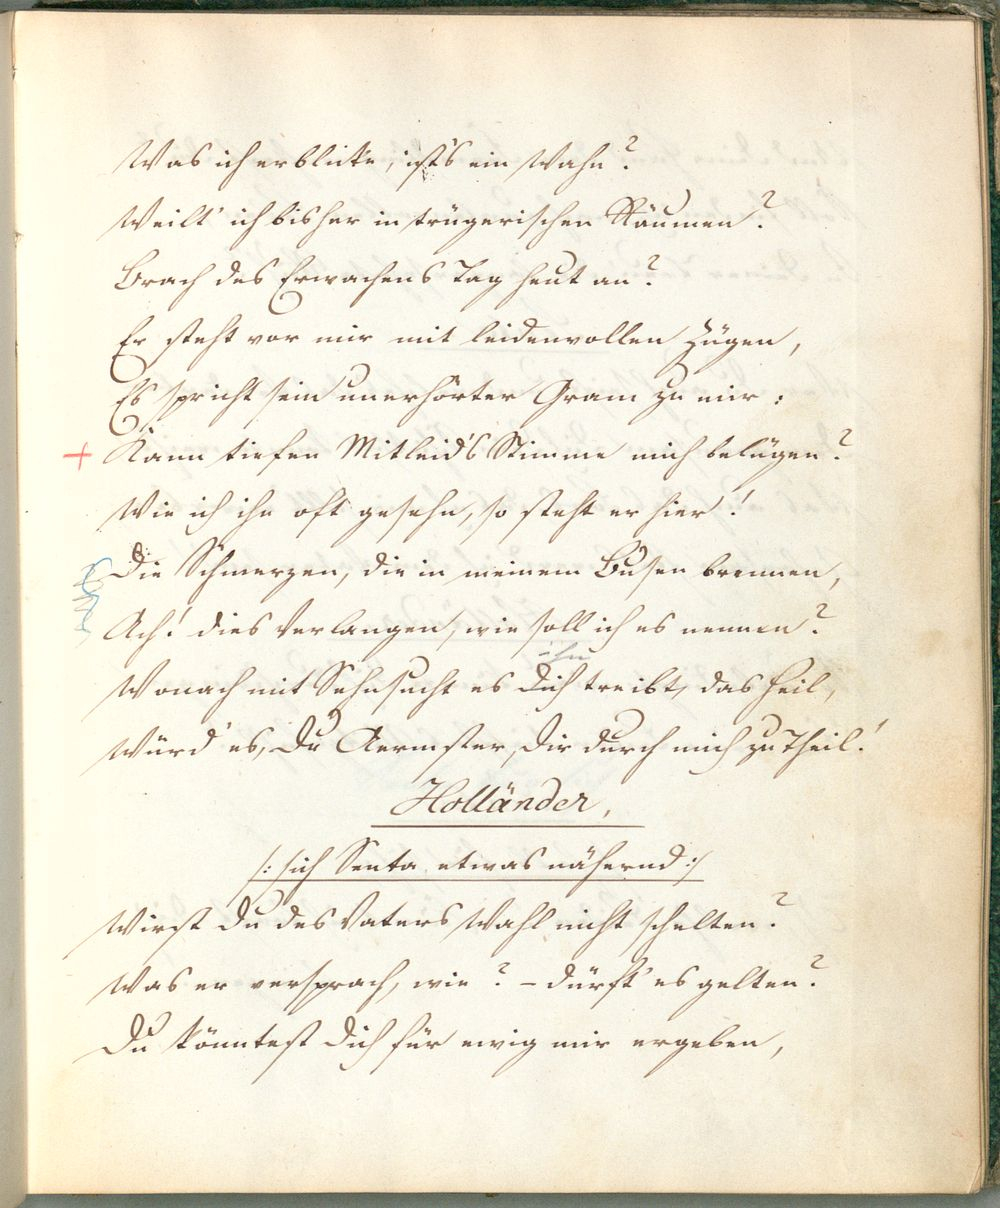 Was ich erblicke, ist's ein Wahn?
Weilt' ich bisher in trügerischen Räumen?
Brach des Erwachens Tag heut an?
Er steht vor mir mit leidenvollen Zügen,
Es spricht sein unerhörter Gram zu mir:
+ Kann tiefen Mitleid's Stimme mich belügen?
Wie ich ihn oft gesehn, so steht er hier!
Die Schmerzen, die in meinem Busen brennen,
Ach! dies Verlangen, wie soll ich es nennen?
ihn
Wonach mit Sehnsucht es Dich treibt, das Heil,
Würd' es, Du Aermster, Dir durch mich zu Theil!
Holländer,
/: sich Senta etwas nähernd :/
Wirst Du des Vaters Wahl nicht schelten?
Was er versprach, wie? – dürft' es gelten?
Du könntest Dich für ewig mir ergeben,